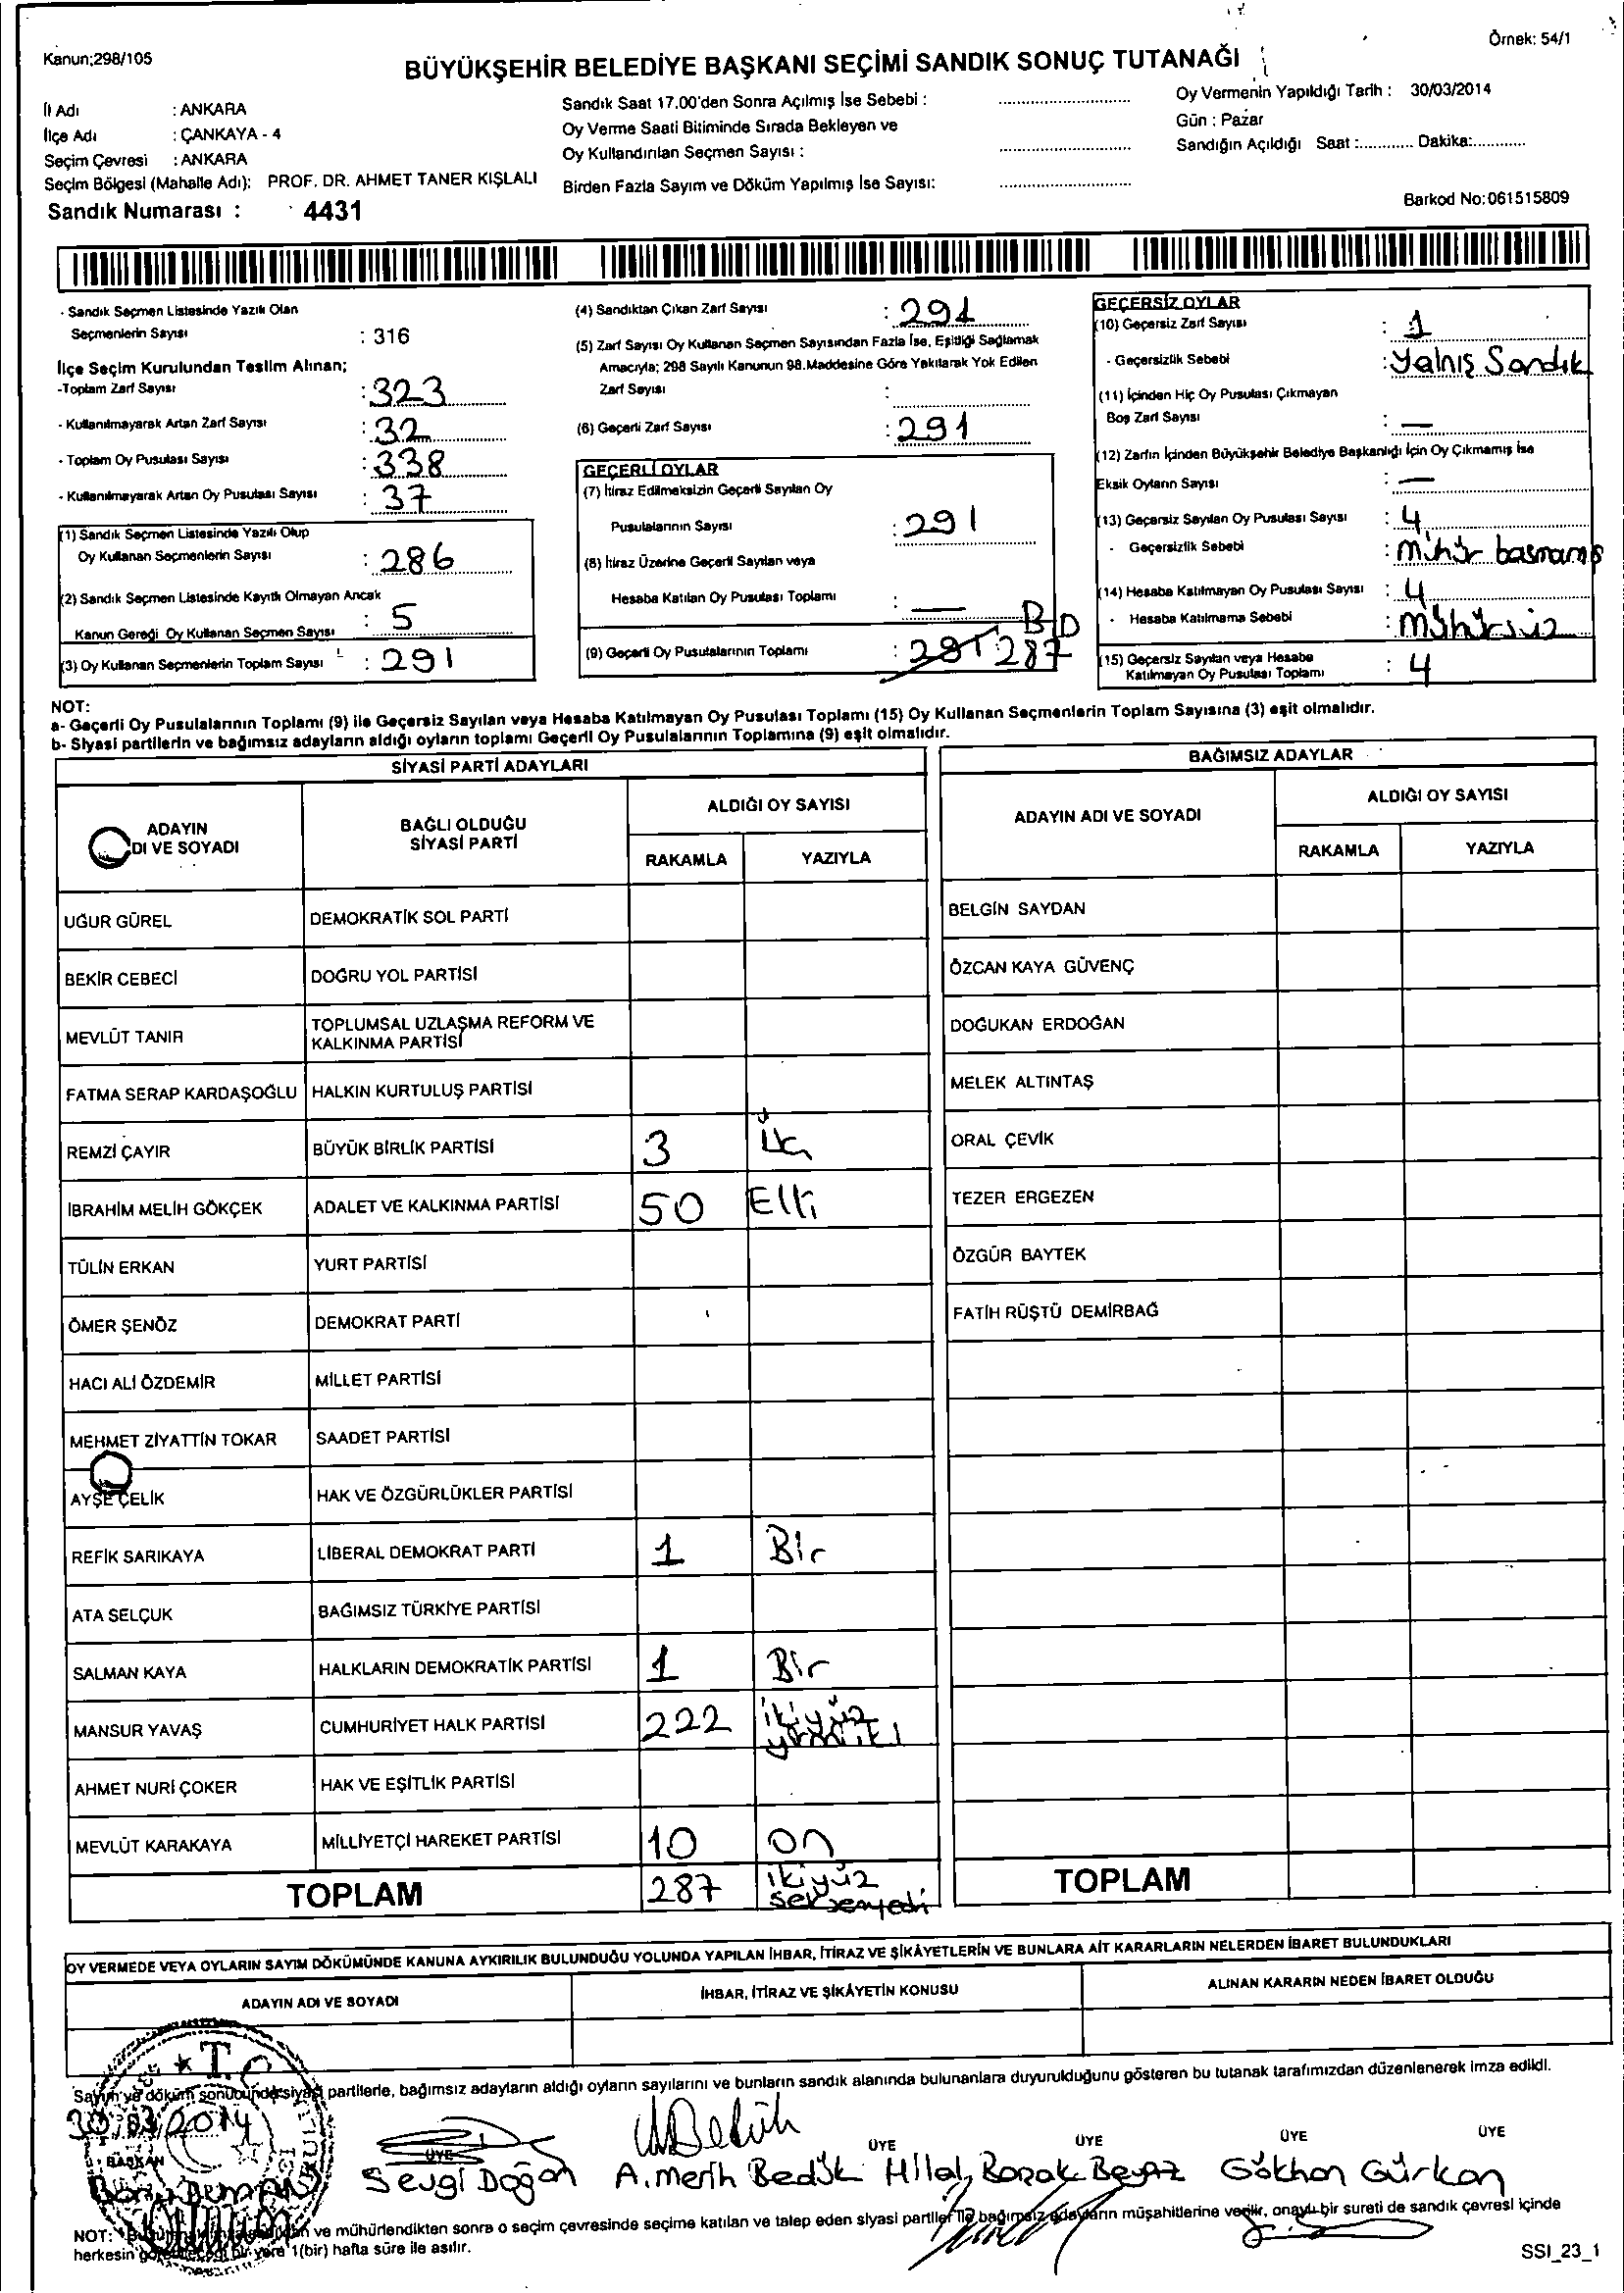 Kanun;298/105
Örnek: 54/1
BÜYÜKŞEHİR BELEDİYE BAŞKANI SEÇİMİ SANDIK SONUÇ TUTANAĞI
İl Adı : ANKARA
İlçe Adı : ÇANKAYA - 4
Seçim Çevresi : ANKARA
Seçim Bölgesi (Mahalle Adı): PROF. DR. AHMET TANER KIŞLALI
Sandık Numarası : 4431
Sandık Saat 17.00'den Sonra Açılmış İse Sebebi : ..........
Oy Verme Saati Bitiminde Sırada Bekleyen ve
Oy Kullandırılan Seçmen Sayısı : ..........
Birden Fazla Sayım ve Döküm Yapılmış İse Sayısı: ..........
Oy Vermenin Yapıldığı Tarih : 30/03/2014
Gün : Pazar
Sandığın Açıldığı Saat :............ Dakika:............
Barkod No:061515809
- Sandık Seçmen Listesinde Yazılı Olan
Seçmenlerin Sayısı : 316
İlçe Seçim Kurulundan Teslim Alınan;
-Toplam Zarf Sayısı : 323
- Kullanılmayarak Artan Zarf Sayısı : 32
- Toplam Oy Pusulası Sayısı : 338
- Kullanılmayarak Artan Oy Pusulası Sayısı : 37
(1) Sandık Seçmen Listesinde Yazılı Olup
Oy Kullanan Seçmenlerin Sayısı : 286
(2) Sandık Seçmen Listesinde Kayıtlı Olmayan Ancak
Kanun Gereği Oy Kullanan Seçmen Sayısı : 5
(3) Oy Kullanan Seçmenlerin Toplam Sayısı : 291
(4) Sandıktan Çıkan Zarf Sayısı : 291
(5) Zarf Sayısı Oy Kullanan Seçmen Sayısından Fazla İse, Eşitliği Sağlamak
Amacıyla; 298 Sayılı Kanunun 98.Maddesine Göre Yakılarak Yok Edilen
Zarf Sayısı :
(6) Geçerli Zarf Sayısı : 291
GEÇERLİ OYLAR
(7) İtiraz Edilmeksizin Geçerli Sayılan Oy
Pusulalarının Sayısı : 291
(8) İtiraz Üzerine Geçerli Sayılan veya
Hesaba Katılan Oy Pusulası Toplamı : —
BD
(9) Geçerli Oy Pusulalarının Toplamı : 291 287
GEÇERSİZ OYLAR
(10) Geçersiz Zarf Sayısı : 1
- Geçersizlik Sebebi : Yalnış Sandık
(11) İçinden Hiç Oy Pusulası Çıkmayan
Boş Zarf Sayısı : —
(12) Zarfın İçinden Büyükşehir Belediye Başkanlığı İçin Oy Çıkmamış İse
Eksik Oyların Sayısı : —
(13) Geçersiz Sayılan Oy Pusulası Sayısı : 4
- Geçersizlik Sebebi : Mühür basmamış
(14) Hesaba Katılmayan Oy Pusulası Sayısı : 4
- Hesaba Katılmama Sebebi : Mühürsüz
(15) Geçersiz Sayılan veya Hesaba
Katılmayan Oy Pusulası Toplamı : 4
NOT:
a- Geçerli Oy Pusulalarının Toplamı (9) ile Geçersiz Sayılan veya Hesaba Katılmayan Oy Pusulası Toplamı (15) Oy Kullanan Seçmenlerin Toplam Sayısına (3) eşit olmalıdır.
b- Siyasi partilerin ve bağımsız adayların aldığı oyların toplamı Geçerli Oy Pusulalarının Toplamına (9) eşit olmalıdır.
SİYASİ PARTİ ADAYLARI
ADAYIN
DI VE SOYADI
BAĞLI OLDUĞU
SİYASİ PARTİ
ALDIĞI OY SAYISI
RAKAMLA YAZIYLA
UĞUR GÜREL DEMOKRATİK SOL PARTİ
BEKİR CEBECİ DOĞRU YOL PARTİSİ
MEVLÜT TANIR TOPLUMSAL UZLAŞMA REFORM VE
KALKINMA PARTİSİ
FATMA SERAP KARDAŞOĞLU HALKIN KURTULUŞ PARTİSİ
REMZİ ÇAYIR BÜYÜK BİRLİK PARTİSİ 3 Üç
İBRAHİM MELİH GÖKÇEK ADALET VE KALKINMA PARTİSİ 50 Elli
TÜLİN ERKAN YURT PARTİSİ
ÖMER ŞENÖZ DEMOKRAT PARTİ
HACI ALİ ÖZDEMİR MİLLET PARTİSİ
MEHMET ZİYATTİN TOKAR SAADET PARTİSİ
AYŞE ÇELİK HAK VE ÖZGÜRLÜKLER PARTİSİ
REFİK SARIKAYA LİBERAL DEMOKRAT PARTİ 1 Bir
ATA SELÇUK BAĞIMSIZ TÜRKİYE PARTİSİ
SALMAN KAYA HALKLARIN DEMOKRATİK PARTİSİ 1 Bir
MANSUR YAVAŞ CUMHURİYET HALK PARTİSİ 222 ikiyüz
yirmiiki
AHMET NURİ ÇOKER HAK VE EŞİTLİK PARTİSİ
MEVLÜT KARAKAYA MİLLİYETÇİ HAREKET PARTİSİ 10 on
TOPLAM 287 ikiyüz
seksenyedi
BAĞIMSIZ ADAYLAR
ADAYIN ADI VE SOYADI
ALDIĞI OY SAYISI
RAKAMLA YAZIYLA
BELGİN SAYDAN
ÖZCAN KAYA GÜVENÇ
DOĞUKAN ERDOĞAN
MELEK ALTINTAŞ
ORAL ÇEVİK
TEZER ERGEZEN
ÖZGÜR BAYTEK
FATİH RÜŞTÜ DEMİRBAĞ
TOPLAM
OY VERMEDE VEYA OYLARIN SAYIM DÖKÜMÜNDE KANUNA AYKIRILIK BULUNDUĞU YOLUNDA YAPILAN İHBAR, İTİRAZ VE ŞİKÂYETLERİN VE BUNLARA AİT KARARLARIN NELERDEN İBARET BULUNDUKLARI
ADAYIN ADI VE SOYADI
İHBAR, İTİRAZ VE ŞİKÂYETİN KONUSU
ALINAN KARARIN NEDEN İBARET OLDUĞU
T.C.
Sayım ve döküm sonucunda siyasi partilerle, bağımsız adayların aldığı oyların sayılarını ve bunların sandık alanında bulunanlara duyurulduğunu gösteren bu tutanak tarafımızdan düzenlenerek imza edildi.
30 03 2014
BAŞKAN ÜYE ÜYE ÜYE ÜYE ÜYE
Sevgi Doğan A.Merih Bedük Hilal Bozok Beyaz Gökhan Gürkan
NOT: ve mühürlendikten sonra o seçim çevresinde seçime katılan ve talep eden siyasi partiler ile bağımsız adayların müşahitlerine verilir, onaylı bir sureti de sandık çevresi içinde
herkesin görebileceği bir yere 1(bir) hafta süre ile asılır.
SSI_23_1